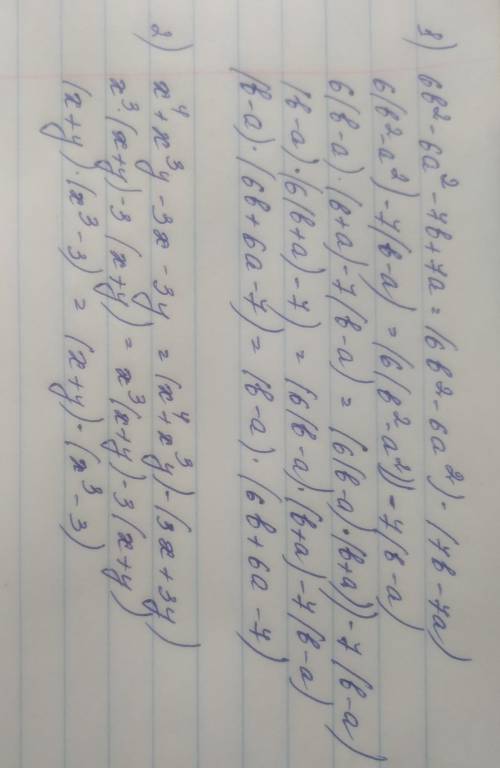 1) 6b²-6a²-7b+7a = (6b²-6a²)-(7b-7a)
6(b²-a²)-7(b-a) = (6(b²-a²))-7(b-a)
6(b-a)·(b+a)-7(b-a) = (6(b-a)·(b+a))-7(b-a)
(b-a)·(6(b+a)-7) = (6(b-a)·(b+a)-7(b-a)
(b-a)·(6b+6a-7) = (b-a)·(6b+6a-7)
2) x⁴+x³y-3x-3y = (x⁴+x³y)-(3x+3y)
x³·(x+y)-3(x+y) = x³(x+y)-3(x+y)
(x+y)·(x³-3) = (x+y)·(x³-3)